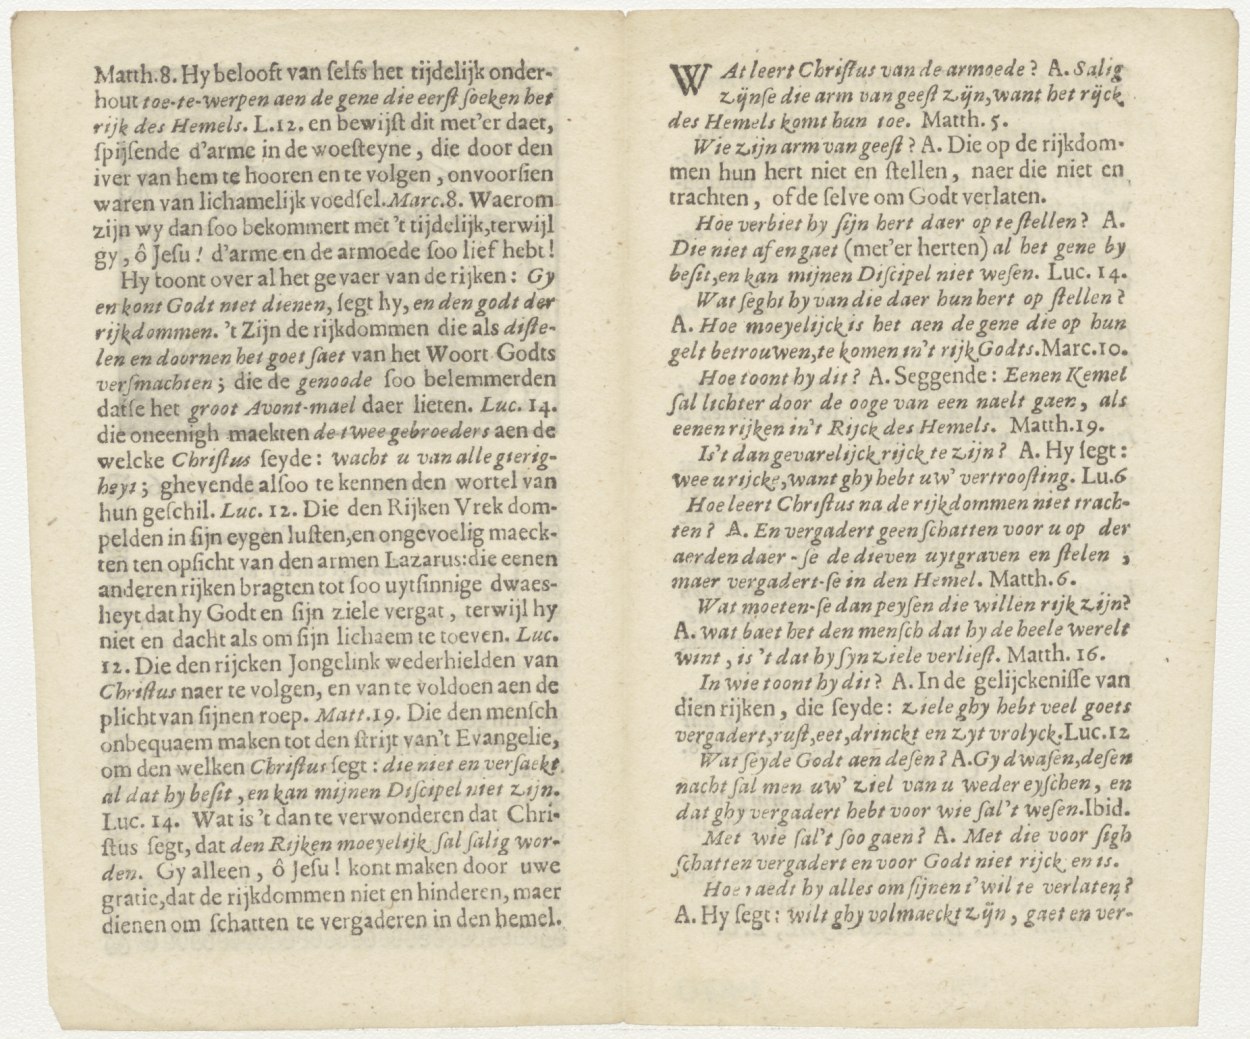 Matth.8. Hy belooft van ſelfs het tijdelijk onder-
hout toe-te-werpen aen de gene die eerſt ſoeken het
rijk des Hemels. L.12. en bewijſt dit met'er daet,
ſpijſende d'arme in de woeſteyne, die door den
iver van hem te hooren en te volgen, onvoorſien
waren van lichamelijk voedſel. Marc.8. Waerom
zijn wy dan ſoo bekommert met 't tijdelijk, terwijl
gy, ô Jeſu! d'arme en de armoede ſoo lief hebt!
Hy toont over al het gevaer van de rijken: Gy
en kont Godt niet dienen, ſegt hy, en den godt der
rijkdommen. 't Zijn de rijkdommen die als diſte-
len en doornen het goet ſaet van het Woort Godts
verſmachten; die de genoode ſoo belemmerden
datſe het groot Avont-mael daer lieten. Luc. 14.
die oneenigh maekten de twee gebroeders aen de
welcke Chriſtus ſeyde: wacht u van alle gierig-
heyt; ghevende alſoo te kennen den wortel van
hun geſchil. Luc. 12. Die den Rijken Vrek dom-
pelden in ſijn eygen luſten, en ongevoelig maeck-
ten ten opſicht van den armen Lazarus: die eenen
anderen rijken bragten tot ſoo uytſinnige dwaes-
heyt dat hy Godt en ſijn ziele vergat, terwijl hy
niet en dacht als om ſijn lichaem te toeven. Luc.
12. Die den rijcken Jongelink wederhielden van
Chriſtus naer te volgen, en van te voldoen aen de
plicht van ſijnen roep. Matt.19. Die den menſch
onbequaem maken tot den ſtrijt van't Evangelie,
om den welken Chriſtus ſegt: die niet en verſaekt
al dat hy beſit, en kan mijnen Diſcipel niet zijn.
Luc. 14. Wat is 't dan te verwonderen dat Chri-
ſtus ſegt, dat den Rijken moeyelijk ſal ſalig wor-
den. Gy alleen, ô Jeſu! kont maken door uwe
gratie, dat de rijkdommen niet en hinderen, maer
dienen om ſchatten te vergaderen in den hemel.
WAt leert Chriſtus van de armoede? A. Salig
zijnſe die arm van geeſt zijn, want het rijck
des Hemels komt hun toe. Matth. 5.
Wie zijn arm van geeſt? A. Die op de rijkdom-
men hun hert niet en ſtellen, naer die niet en
trachten, of de ſelve om Godt verlaten.
Hoe verbiet hy ſijn hert daer op te ſtellen? A.
Die niet af en gaet (met'er herten) al het gene by
beſit, en kan mijnen Diſcipel niet weſen. Luc. 14.
Wat ſeght hy van die daer hun hert op ſtellen?
A. Hoe moeyelijck is het aen de gene die op hun
gelt betrouwen, te komen in't rijk Godts. Marc.10.
Hoe toont hy dit? A. Seggende: Eenen Kemel
ſal lichter door de ooge van een naelt gaen, als
eenen rijken in't Rijck des Hemels. Matth.19.
Is't dan gevarelijck rijck te zijn? A. Hy ſegt:
wee u rijcke, want ghy hebt uw' vertrooſting. Lu.6
Hoe leert Chriſtus na de rijkdommen niet trach-
ten? A. En vergadert geen ſchatten voor u op der
aerden daer-ſe de dieven uytgraven en ſtelen,
maer vergadert-ſe in den Hemel. Matth.6.
Wat moeten-ſe dan peyſen die willen rijk zijn?
A. wat baet het den menſch dat hy de heele werelt
wint, is 't dat hy ſyn ziele verlieſt. Matth. 16.
In wie toont hy dit? A. In de gelijckeniſſe van
dien rijken, die ſeyde: ziele ghy hebt veel goets
vergadert, ruſt, eet, drinckt en zyt vrolyck. Luc.12
Wat ſeyde Godt aen deſen? A. Gy dwaſen, deſen
nacht ſal men uw' ziel van u weder eyſchen, en
dat ghy vergadert hebt voor wie ſal't weſen. Ibid.
Met wie ſal't ſoo gaen? A. Met die voor ſigh
ſchatten vergadert en voor Godt niet rijck en is.
Hoe raedt hy alles om ſijnen t'wil te verlaten?
A. Hy ſegt: wilt ghy volmaeckt zijn, gaet en ver-